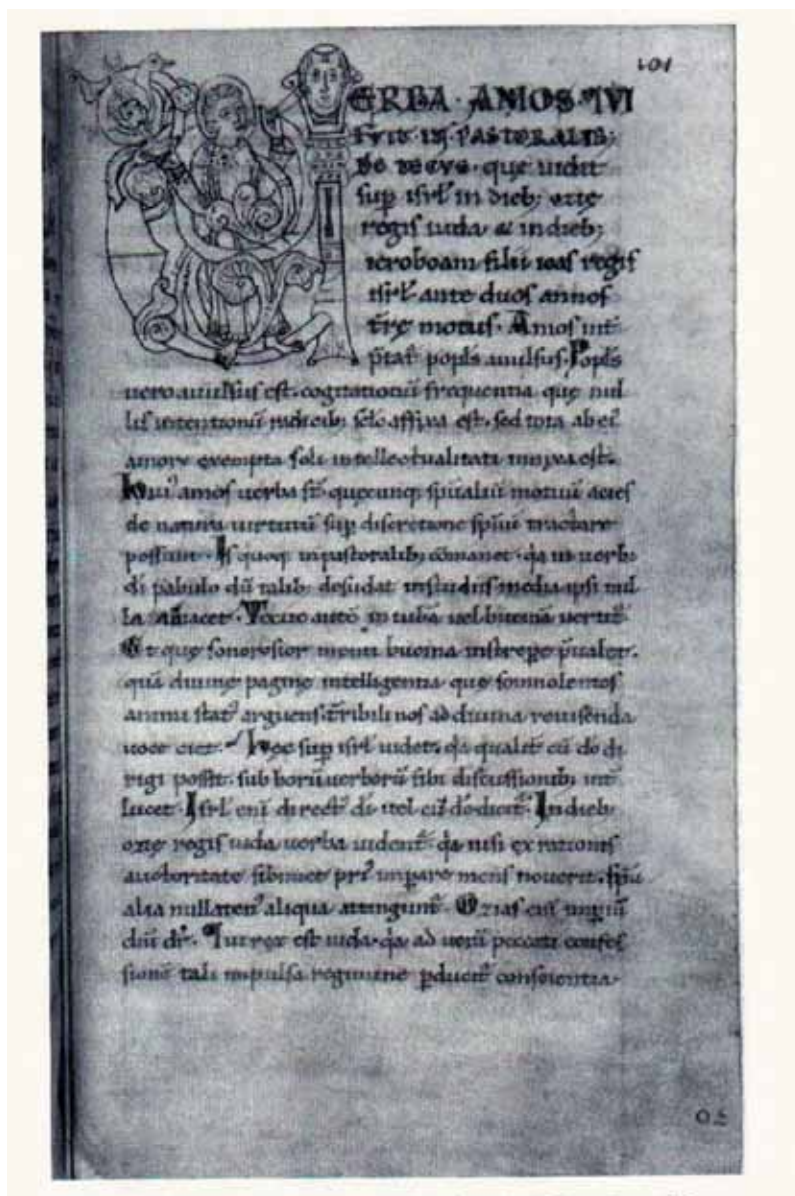 101
ERBA · AMOS · QVI
FVIT IN PASTORALIB;
DE TECVE · quę uidit
sup isrl in dieb; ozię
regis iuda & in dieb;
ieroboam filii ioas regis
isrl ante duos annos
tr̄ę motus · Amos int̄
p̄tat popl̄s auulsus · Popl̄s
uero auulsus est · cogitationū frequentia quę nul
lis intentionū radicib; sc̄lo affixa est · sed tota ab ei᾽
amore exempta soli intellectualitati innixa est ·
amos uerba st̄ quęcunq; sp̄ualiū motuū acies
de natura uirtutū sup discretione sp̄uū tractare
possunt · Is quoq; in pastoralib; cōmanet · q̄a in uerbi
di pabulo dū talib; desudat in studiis media ipsi nul
la adiacet · Tecue autē in tubā uel bucinā uertit᾽
Et quę sonorosior menti bucina instrepere p̄ualet ·
quā diuinę paginę intelligentia quę somnolentos
animi stat᾽ arguens t̄ribili nos ad diuina reuisenda
uoce ciet · Hęc sup isrl uidet · q̄a qualit̄ cū dō di
rigi possit · sub horū uerborū sibi discussionib; int̄
lucet · Isrl eni direct᾽ di uel cū dō dicit᾽ · In dieb;
ozię regis iuda uerba uident᾽ · q̄a nisi ex rationis
auctoritate sibimet pri᾽ imparare mens nouerit · sp̄ū
alia nullaten᾽ aliqua attingunt᾽ · Ozias eni᾽ imperiū
dn̄i dr̄ · Qui rex est iuda · q̄a ad uerā peccati confes
sionē tali impulsa regimine p̄ducit᾽ conscientia ·